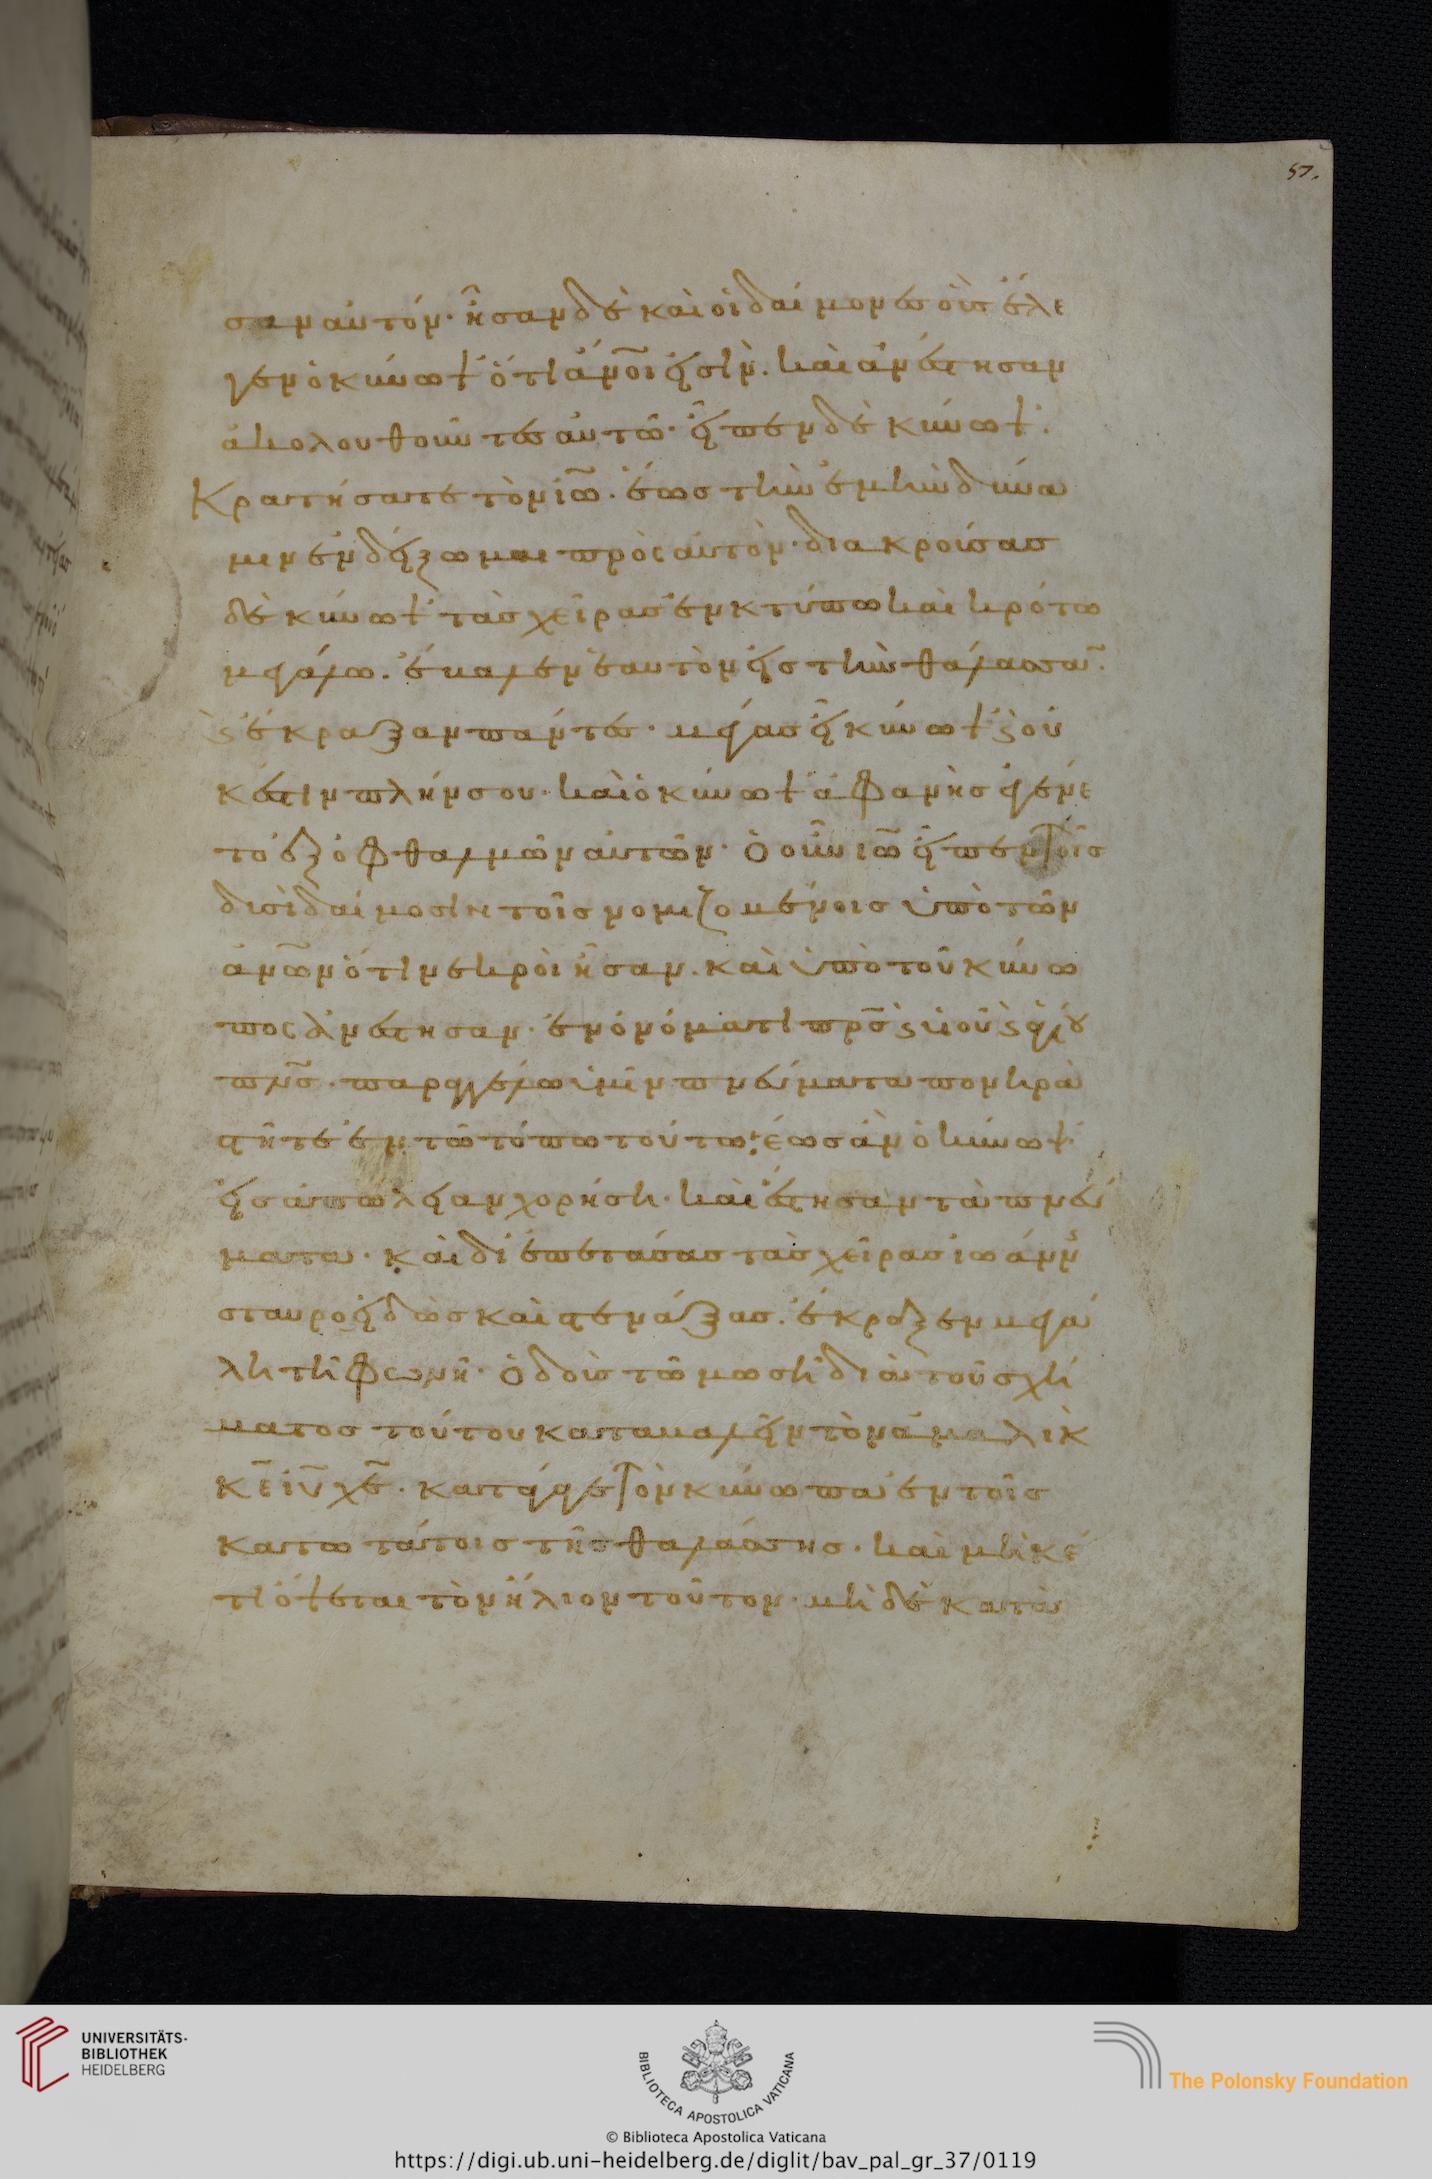 57.
σαν αὐτόν· ἦσαν δὲ καὶ οἱ δαίμονες οἷς ἔλε
γεν ὁ κύνωψ ὅτι ἄνοι εἰσὶν. καὶ ἀνέστησαν
ἀκολουθοῦντες αὐτῶ· εἶπεν δὲ κύνωψ·
Κρατήσατε τὸν ἰω. ἕως τὴν ἐμὴν δύνα
μιν ἐνδείξωμαι πρὸς αὐτὸν· διακρούσας
δὲ κύνωψ τὰς χεῖρας ἐν κτύπω καὶ κρότω
μεγάλω. ἔβαλεν ἑαυτὸν εἰς τὴν θάλασσα.
ϛ ἔκραξαν πάντες· μέγας εἶ κύνωψ ϛ οὐ
κέστιν πλήν σου· καὶ ὁ κύνωψ ἀφανὴς ἐγένε
το ἐξ ὀφθαλμῶν αὐτῶν· ὁ οὖν ιω εἶπεν τοῖς
δισὶ δαίμοσιν τοῖς νομιζομένοις ὑπὸ τῶν
ἀνων ὅτι νεκροὶ ἦσαν. καὶ ὑπὸ τοῦ κύνω
πος ἀνέστησαν· ἐν ὀνόματι πρς ϛ υἱοῦ ϛ ἁγίου
πνς· παραγγέλω ὑμῖν πνεύματα πονηρὰ
στῆτε ἐν τῶ τόπω τούτω· ἕως ἂν ὁ κύνωψ
εἰς ἀπώλειαν χορήση· καὶ ἔστησαν τὰ πνεύ
ματα· καὶ δὶ ἐπετάσας τὰς χεῖρας ἰωάνν
σταυροειδῶς καὶ στενάξας. ἔκραξεν μεγά
λη τῆ φωνῆ· ὁ δοὺς τῶ μωσῆ διὰ τοῦ σχή
ματος τούτου καταβαλεῖν τὸν ἀμαλὶκ
κε ιυ χε· κατάγαγε τὸν κύνωπα ἐν τοῖς
κατωτάτοις τῆς θαλάσσης· καὶ μὴκέ
τι ὄψεται τὸν ἥλιον τοῦτον· μὴ δὲ κατα
UNIVERSITÄTS-
BIBLIOTHEK
HEIDELBERG
BIBLIOTECA APOSTOLICA VATICANA
The Polonsky Foundation
© Biblioteca Apostolica Vaticana
https://digi.ub.uni-heidelberg.de/diglit/bav_pal_gr_37/0119